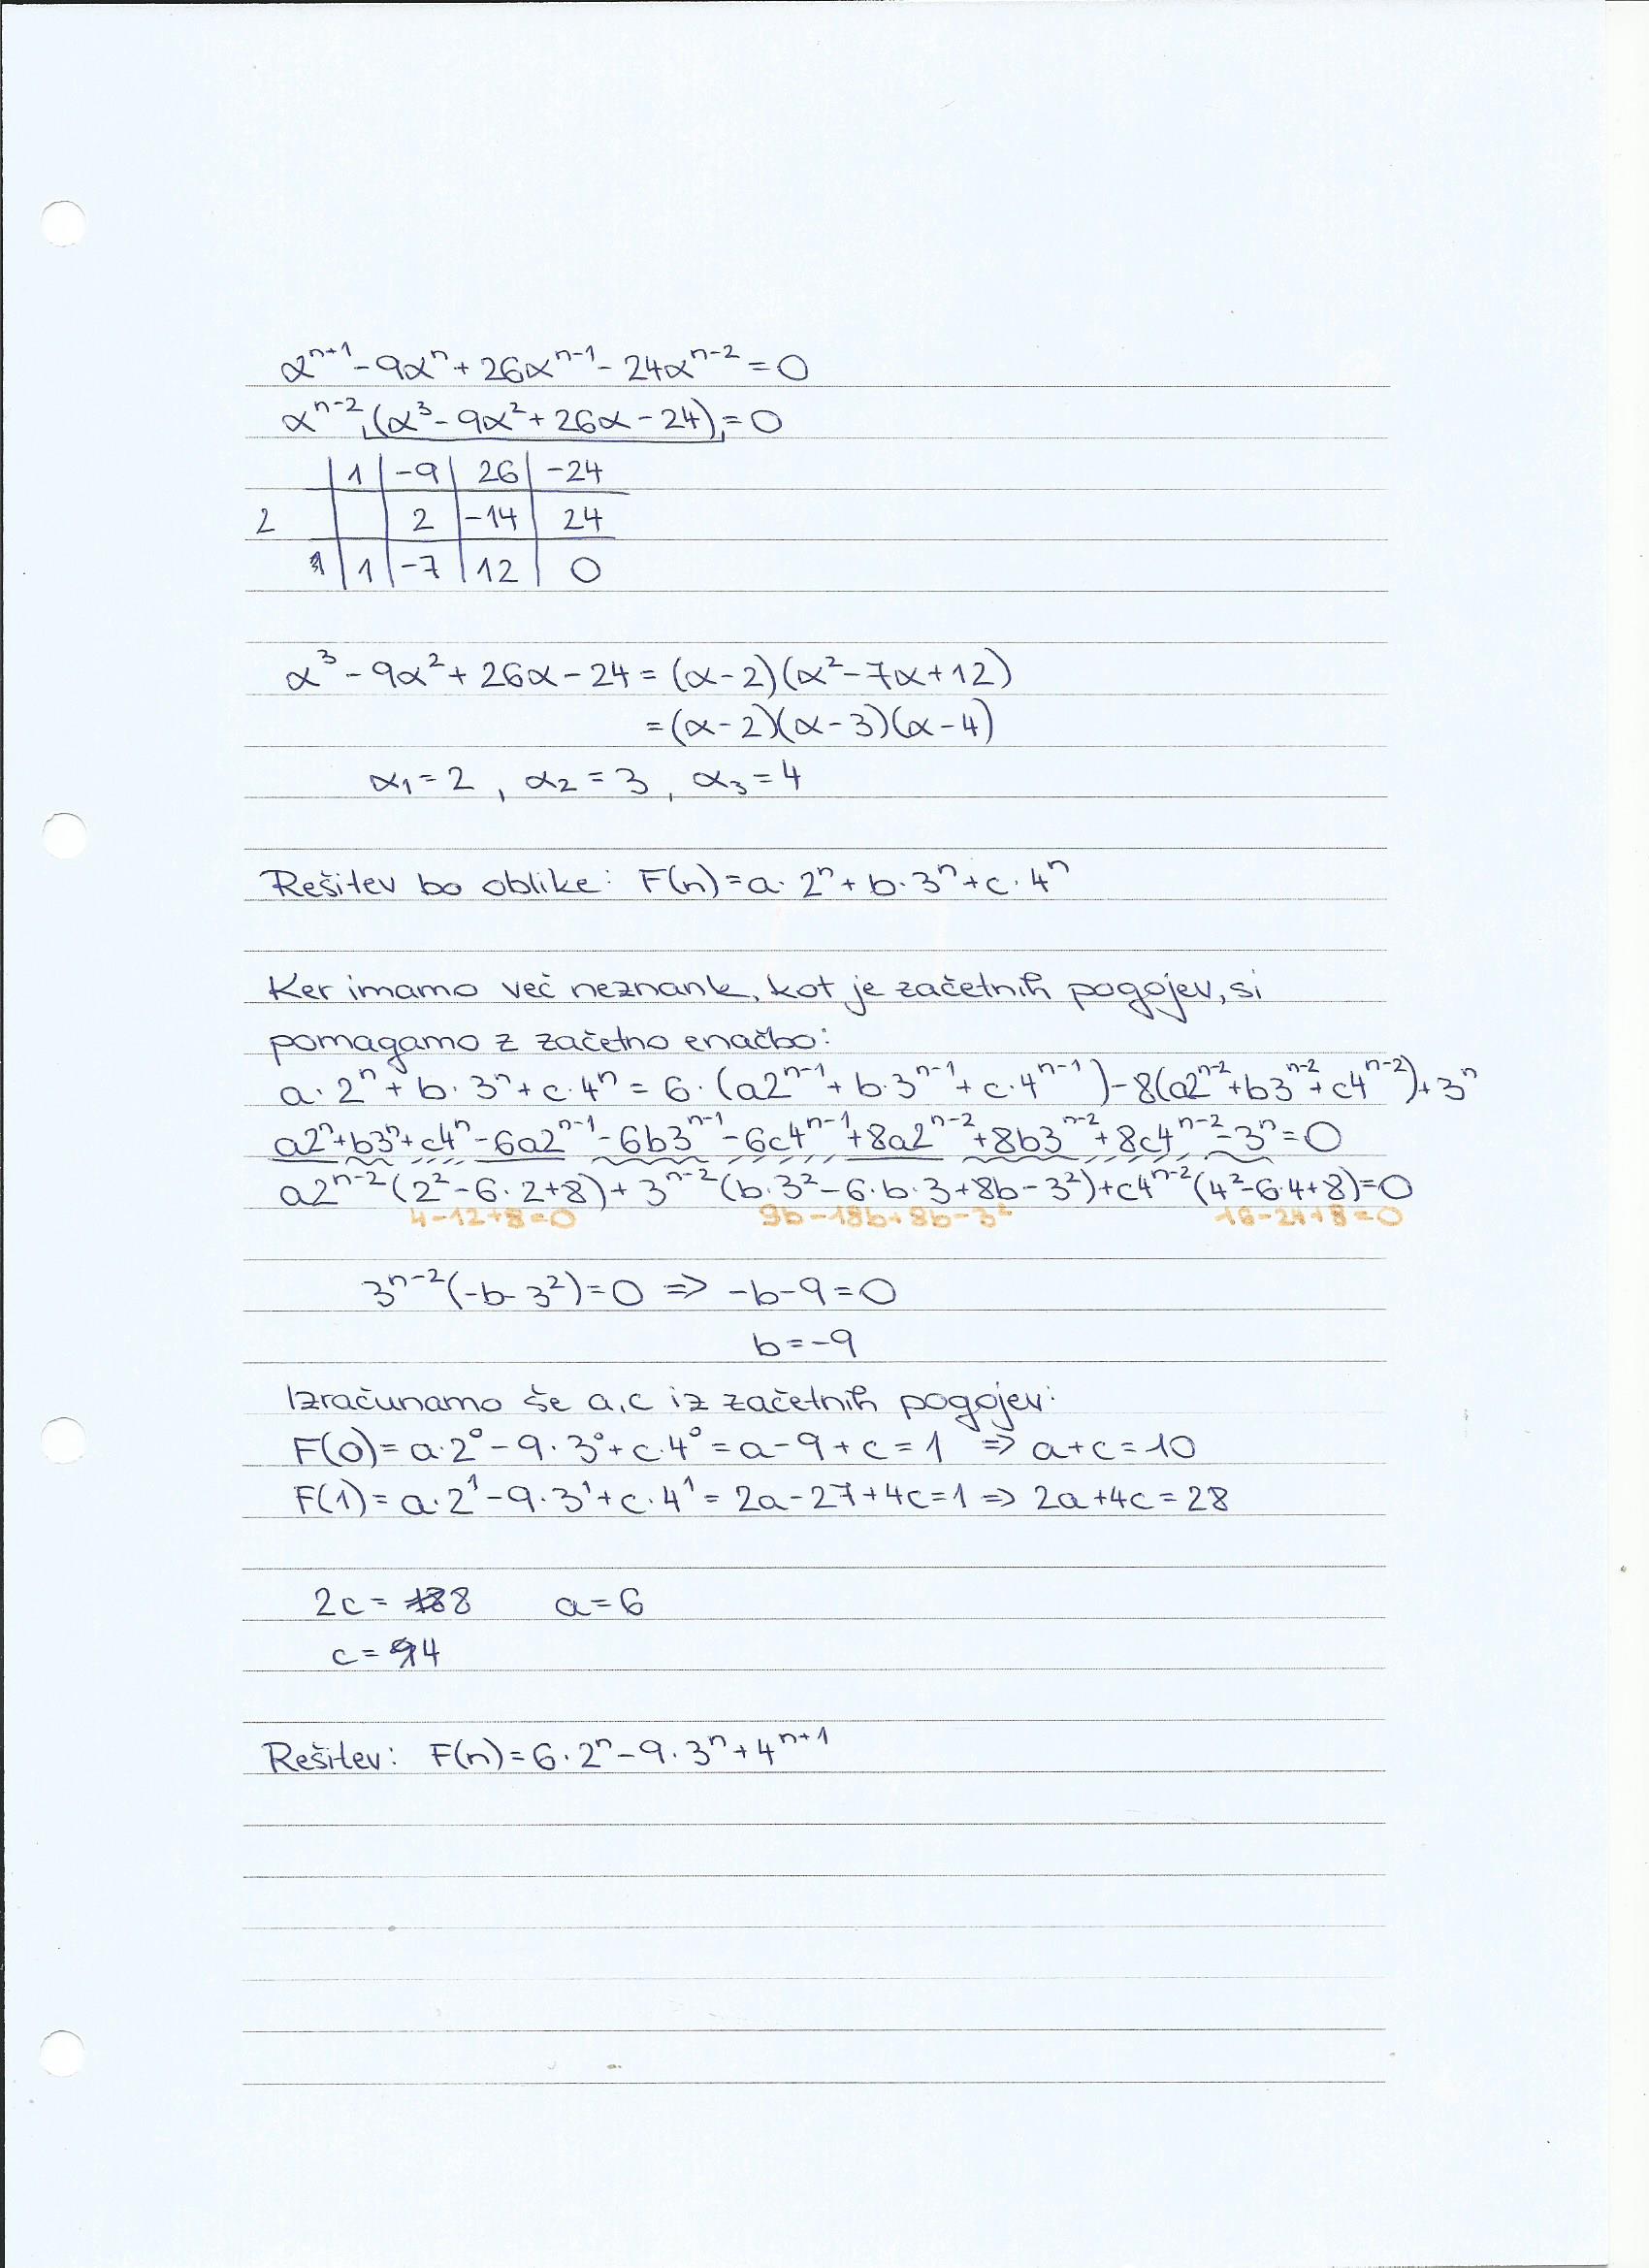 α^{n+1} - 9α^n + 26α^{n-1} - 24α^{n-2} = 0
α^{n-2} (α^3 - 9α^2 + 26α - 24) = 0
| 1 | -9 | 26 | -24
2 | | 2 | -14 | 24
| 1 | -7 | 12 | 0
α^3 - 9α^2 + 26α - 24 = (α-2)(α^2-7α+12)
= (α-2)(α-3)(α-4)
α_1 = 2 , α_2 = 3 , α_3 = 4
Rešitev bo oblike: F(n) = a·2^n + b·3^n + c·4^n
Ker imamo več neznank, kot je začetnih pogojev, si
pomagamo z začetno enačbo:
a·2^n + b·3^n + c·4^n = 6·(a2^{n-1} + b·3^{n-1} + c·4^{n-1}) - 8(a2^{n-2} + b3^{n-2} + c4^{n-2}) + 3^n
a2^n + b3^n + c4^n - 6a2^{n-1} - 6b3^{n-1} - 6c4^{n-1} + 8a2^{n-2} + 8b3^{n-2} + 8c4^{n-2} - 3^n = 0
a2^{n-2}(2^2 - 6·2 + 8) + 3^{n-2}(b·3^2 - 6·b·3 + 8b - 3^2) + c4^{n-2}(4^2 - 6·4 + 8) = 0
4-12+8=0 9b-18b+8b-3^2 16-24+8=0
3^{n-2}(-b-3^2) = 0 ⇒ -b-9 = 0
b = -9
Izračunamo še a,c iz začetnih pogojev:
F(0) = a·2^0 - 9·3^0 + c·4^0 = a - 9 + c = 1 ⇒ a+c = 10
F(1) = a·2^1 - 9·3^1 + c·4^1 = 2a - 27 + 4c = 1 ⇒ 2a+4c = 28
2c = 8 a = 6
c = 4
Rešitev: F(n) = 6·2^n - 9·3^n + 4^{n+1}